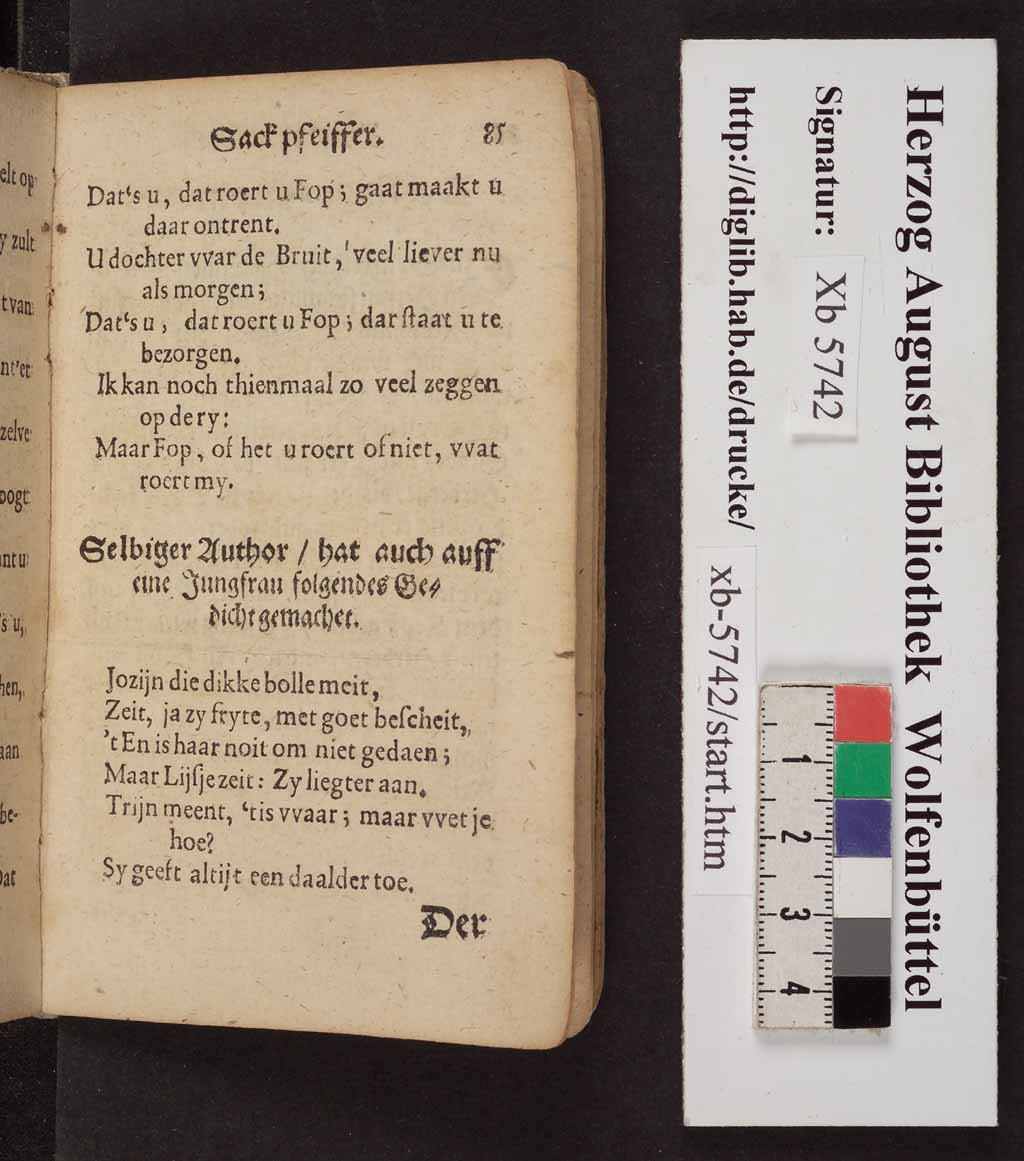 elt op
y zult
t van
nt'et
zelve
oogt
nt u
's u,
hen,
aan
be-
Dat
Sackpfeiffer. 85
Dat's u, dat roert u Fop; gaat maakt u
daar ontrent.
U dochter vvar de Bruit, veel liever nu
als morgen;
Dat's u, dat roert u Fop; dar ſtaat u te
bezorgen.
Ik kan noch thienmaal zo veel zeggen
op de ry:
Maar Fop, of het u roert of niet, vvat
roert my.
Selbiger Author / hat auch auff
eine Jungfrau folgendes Ge⸗
dicht gemachet.
Jozijn die dikke bolle meit,
Zeit, ja zy fryte, met goet beſcheit,
't En is haar noit om niet gedaen;
Maar Lijſje zeit: Zy liegter aan.
Trijn meent, 'tis vvaar; maar vvet je
hoe?
Sy geeft altijt een daalder toe.
Der
Herzog August Bibliothek Wolfenbüttel
Signatur: Xb 5742
http://diglib.hab.de/drucke/ xb-5742/start.htm
1
2
3
4